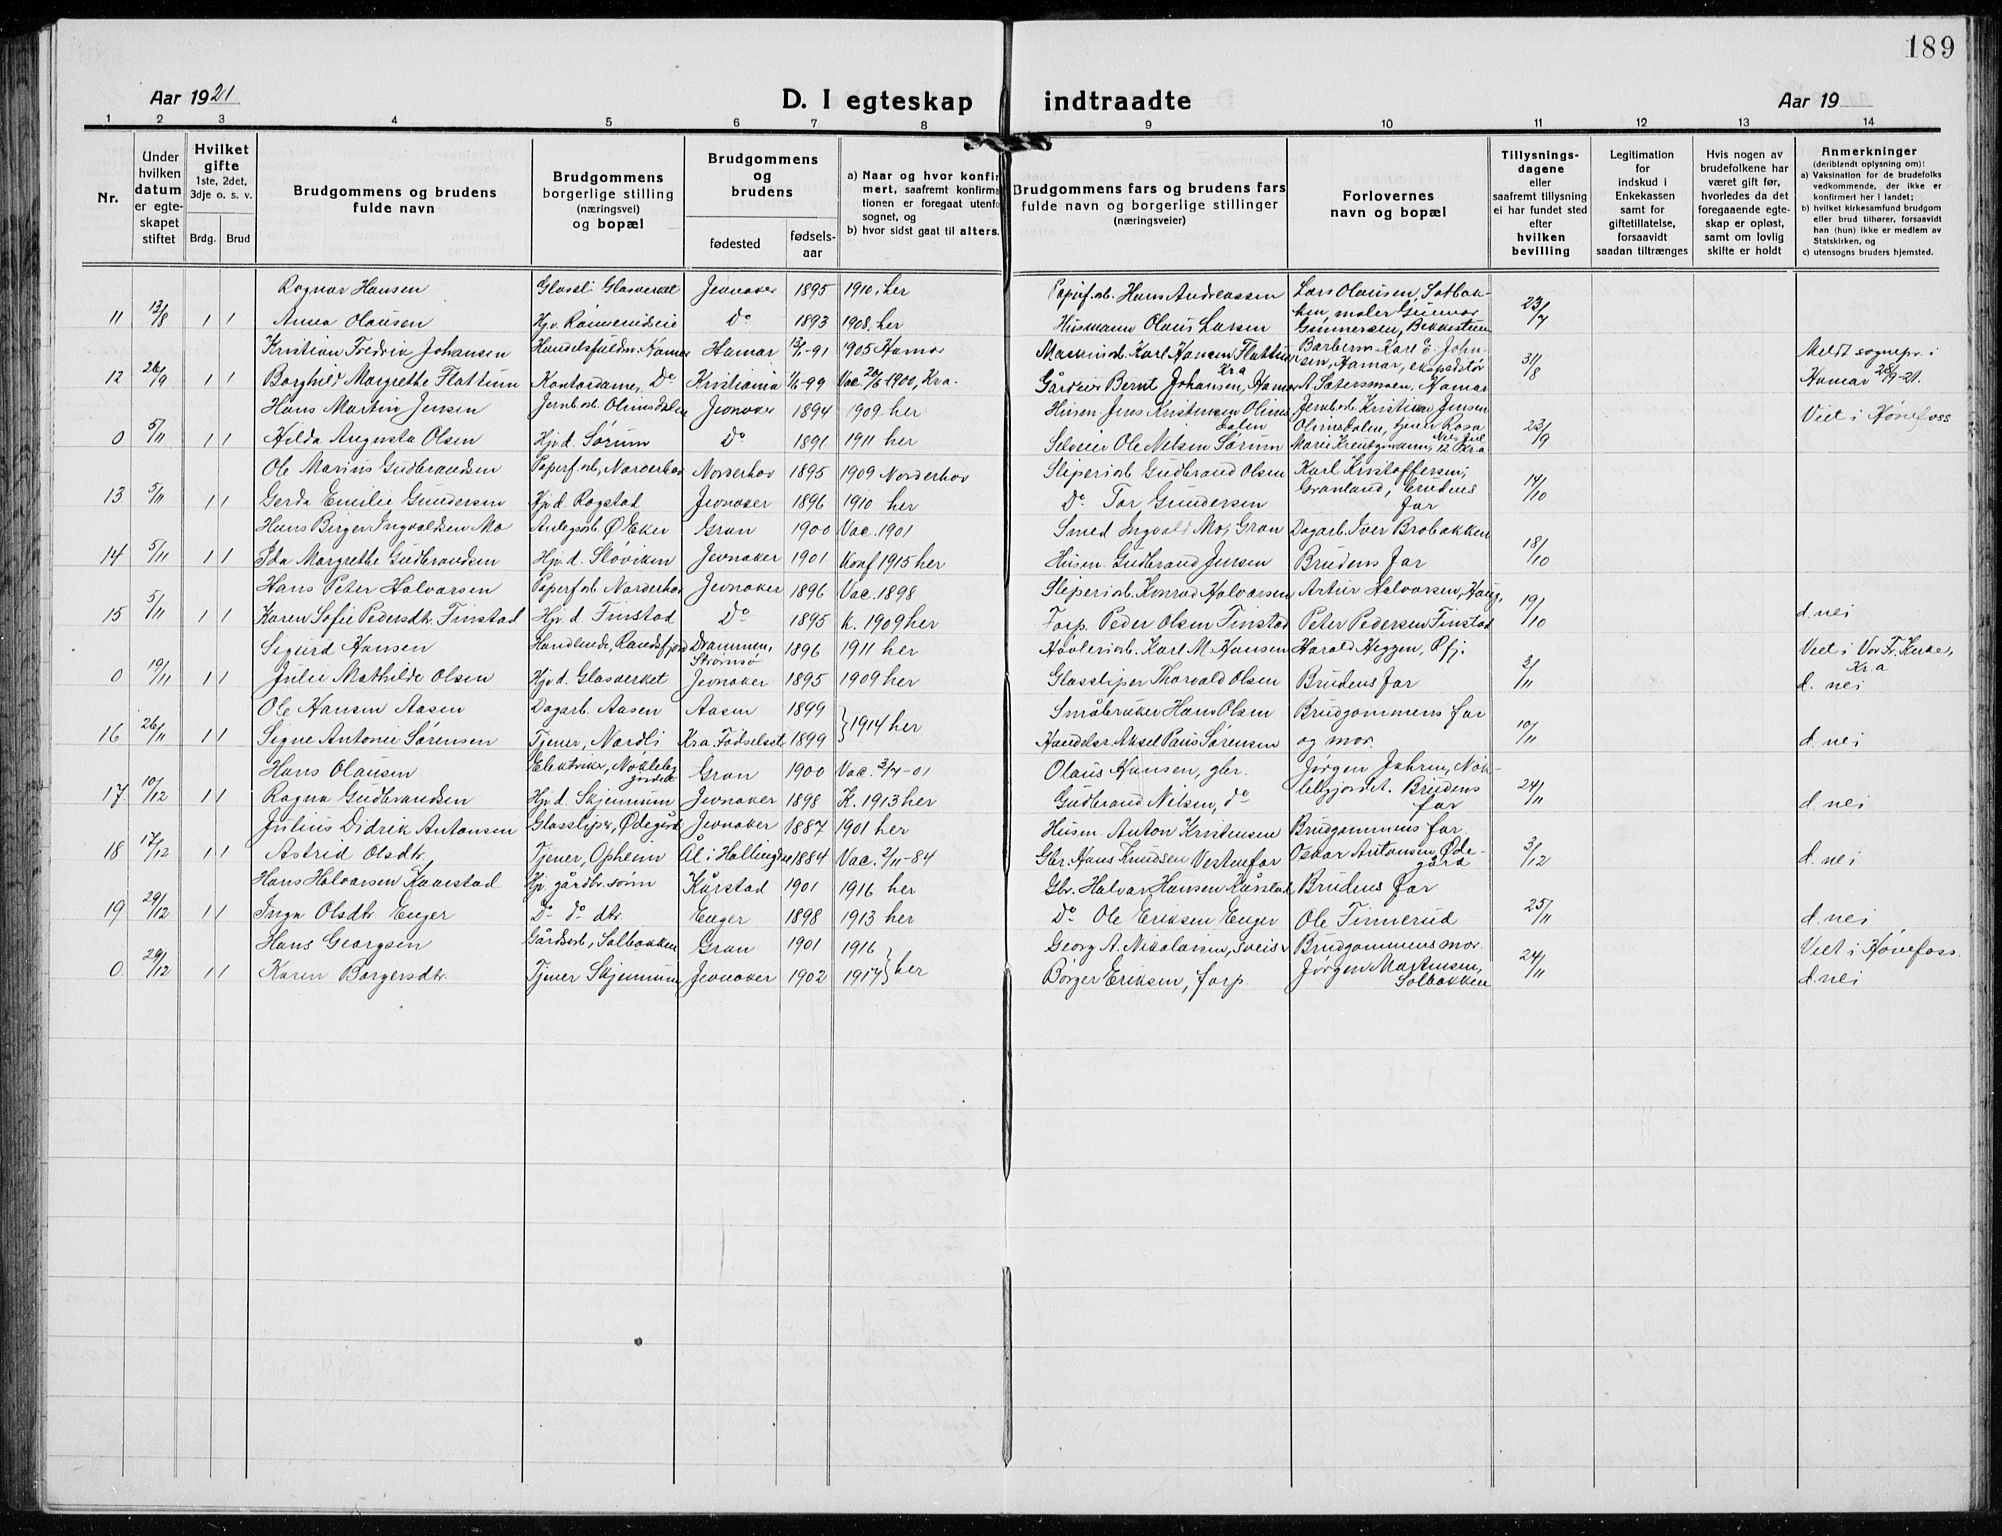 189
Aar 1921
D. I egteskap indtraadte
Aar 19
1 2 3 4 5 6 7 8 9 10 11 12 13 14
Nr.
Under hvilken datum er egteskapet stiftet
Hvilket gifte 1ste, 2det, 3dje o. s. v.
Brdg. Brud
Brudgommens og brudens fulde navn
Brudgommens borgerlige stilling (næringsvei) og bopæl
Brudgommens og brudens
fødested
fødsels-aar
a) Naar og hvor konfirmert, saafremt konfirmationen er foregaat utenfor sognet, og
b) hvor sidst gaat til alters.
Brudgommens fars og brudens fars fulde navn og borgerlige stillinger (næringsveier)
Forlovernes navn og bopæl
Tillysningsdagene eller saafremt tillysning ei har fundet sted efter hvilken bevilling
Legitimation for indskud i Enkekassen samt for giftetillatelse, forsaavidt saadan tiltrænges
Hvis nogen av brudefolkene har været gift før, hvorledes da det foregaaende egteskap er opløst, samt om lovlig skifte er holdt
Anmerkninger (deriblandt oplysning om):
a) Vaksination for de brudefolks vedkommende, der ikke er konfirmert her i landet;
b) hvilket kirkesamfund brudgom eller brud tilhører, forsaavidt han (hun) ikke er medlem av Statskirken, og
c) utensogns bruders hjemsted.
Ragnar Hansen Glassli Glasverket Jevnaker 1895 1910 her Papirf.arb. Hans Andreassen Lars Olausen, Solbak-
11 13/8 1 1 Anna Olausen Hjv. Ramsrudeie Do 1893 1908, her Husmann Olaus Larsen ken, maler Gunnar Gunnersen, Bekkestuen 23/7
Kristian Fredrik Johansen Handelsfuldm. Hamar Hamar 13/1-91 1905 Hamar Maskinarb. Karl Hansen Flattum Kra Barberm. Karl E. John-
12 26/9 1 1 Borghild Margrethe Flattum Kontordame, Do Kristiania 1/6-99 Vac 20/6 1900, Kra. Gårdeier Bernt Johansen, Hamar sen, Hamar, ekspeditør A. Sætersmoen, Hamar 31/8 Meldt sognepr. i Hamar 28/9-21.
Hans Martin Jensen Jernb.arb. Olimsdalen Jevnaker 1894 1909 her Husm. Jens Kristensen Olimsdalen Jernb.arb. Kristian Jensen
0 5/11 1 1 Hilda Augusta Olsen Hjv d. Sørum Do 1891 1911 her Selveier Ole Nilsen Sørum Olimsdalen, tjener Rosa Marie 12 Kra 23/9 Viet i Hønefoss
Ole Marius Gudbrandsen Papirf.arb, Norderhov Norderhov 1895 1909 Norderhov Sliperiarb. Gudbrand Olsen Karl Kristoffersen,
13 5/11 1 1 Gerda Emilie Gundersen Hjv d. Rogstad Jevnaker 1896 1910 her Do Tor Gundersen Granlund, Brudens far 14/10
Hans Birger Ingvaldsen Mo Anlegsarb. Ø. Eker Gran 1900 Vac. 1901 Smed Ingvald Mo, Gran Dagarb. Iver Brobakken
14 5/11 1 1 Ida Margrethe Gudbrandsen Hjv. d. Sløviken Jevnaker 1901 Konf 1915 her Husm. Gudbrand Jensen Brudens far 18/10
Hans Peter Halvorsen Papirf.arb Norderhov Jevnaker 1896 Vac. 1898 Sliperiarb. Konrad Halvorsen Artur Halvorsen, Haug,
15 5/11 1 1 Karen Sofie Pedersdtr. Finstad Hjv d. Finstad Do 1895 K. 1909 her Forp. Peder Olsen Finstad Peter Pedersen Finstad 19/10 d. nei
Sigurd Hansen Handlende, Randsfjord Drammen, Strømsø 1896 1911 her Høvleriarb. Karl M. Hansen Harald Heggen, Rfj. Viet i Vor Fr. Kirke, Kr.a
0 19/11 1 1 Julie Mathilde Olsen Hjv d. Glasverket Jevnaker 1895 1909 her Glassliper Thorvald Olsen Brudens far 3/11 d. nei
Ole Hansen Aasen Dagarb. Aasen Aasen 1899 } 1914 her Småbruker Hans Olsen Brudgommens far
16 26/11 1 1 Signe Antonie Sørensen Tjener, Nordli Kra. Fødselsst. 1899 Handelsr. Aksel Paus Sørensen og mor. 10/11 d. nei
Hans Olausen Elektriker, Nøkleby-gjordet Gran 1900 Vac. 3/7-01 Olaus Hansen, gbr. Jørgen Jahren, Nøk-
17 10/12 1 1 Ragna Gudbrandsen Hjv d. Skjennum Jevnaker 1898 K. 1913 her Gudbrand Nilsen, do lebygjordet. Brudens far 24/11 d. nei
Julius Didrik Antonsen Glassliper, Ødegård Jevnaker 1887 1901 her Husm Anton Kristensen Brudgommens far
18 17/12 1 1 Astrid Olsdtr. Tjener, Opheim Ål i Hallingd. 1884 Vac. 2/11-84 Gbr. Hans Knudsen Vestenfor Oskar Antonsen, Ødegård 3/12 d. nei
Hans Halvorsen Kaarstad Hjv gårdbr. sønn Kårstad 1901 1916 her Gbr. Halvor Hansen Kårstad Brudens far
19 29/12 1 1 Inga Olsdtr Enger Do do dtr. Enger 1898 1913 her Do Ole Eriksen Enger Ole Finnerud 25/11 d. nei
Hans Georgsen Gårdsarb, Solbakken Gran 1901 1916 } her Georg A. Nikolaisen, sveis Brudgommens mor. Viet i Hønefoss.
0 29/12 1 1 Karen Børgersdtr. Tjener Skjennum Jevnaker 1902 1917 Børger Eriksen, forp. Jørgen Martinsen, Solbakken 24/11 d. nei